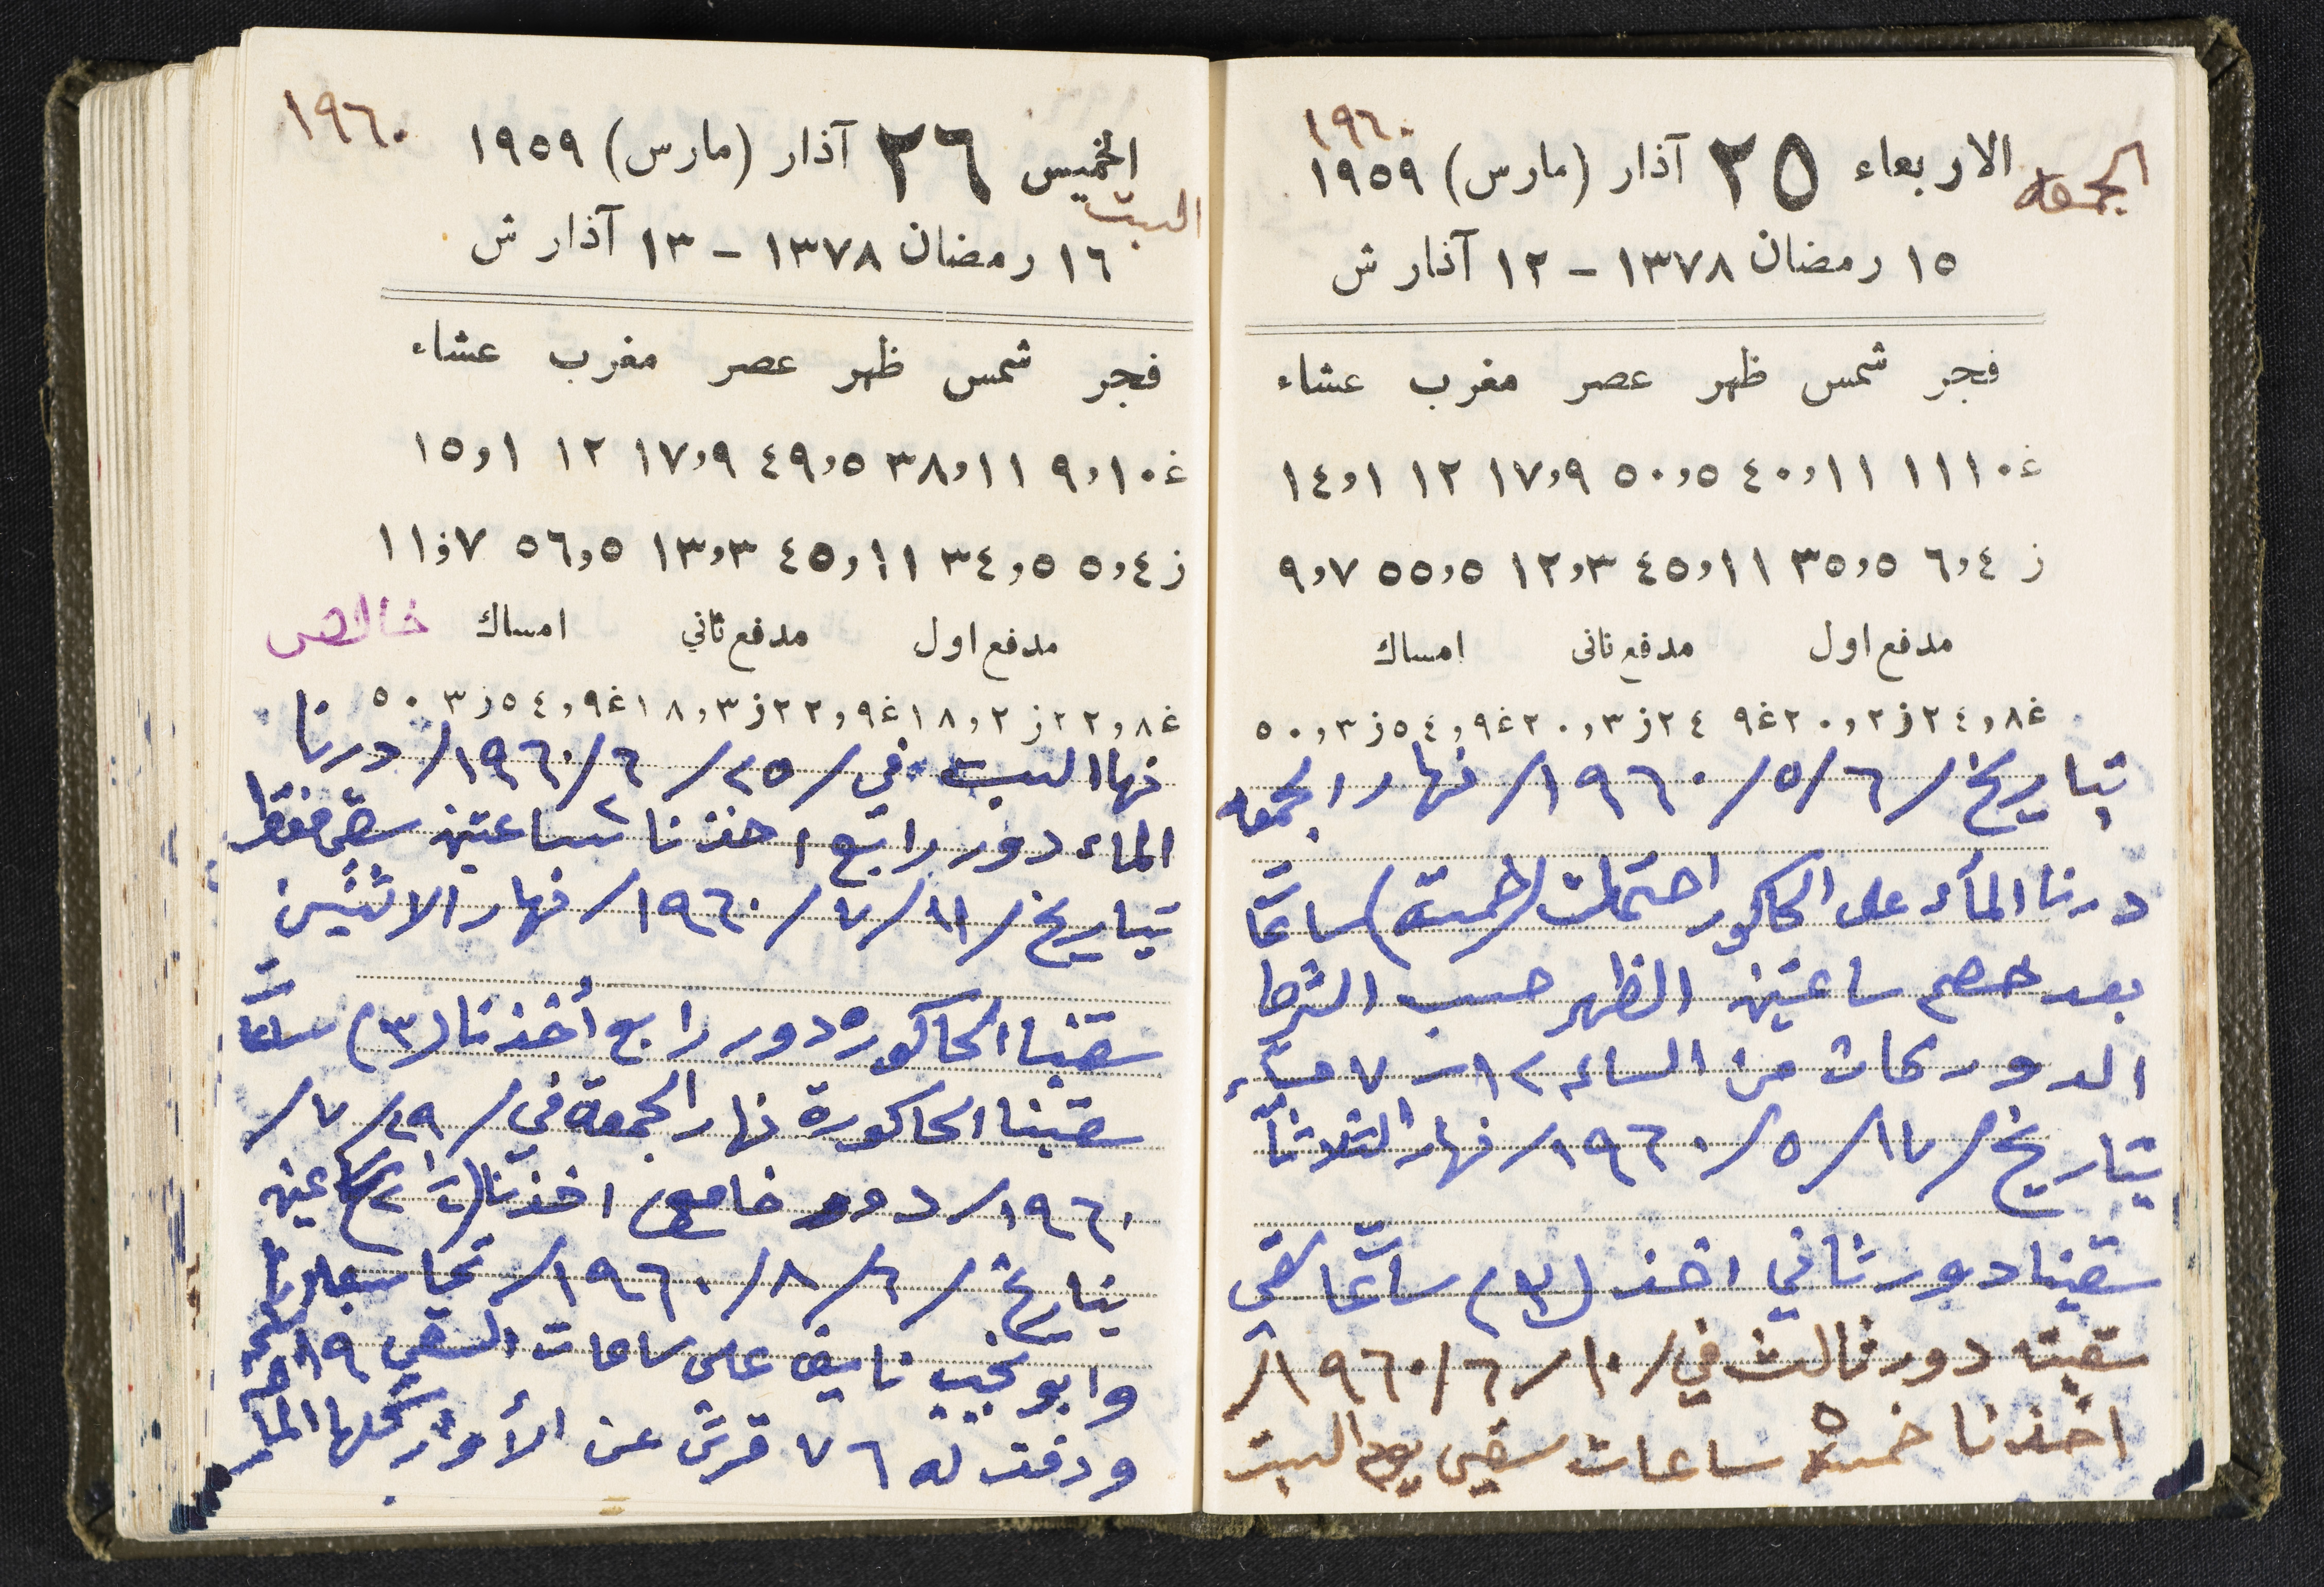 ١٩٦٠
الجمعه الاربعاء ٢٥ آذار (مارس) ١٩٥٩
١٥ رمضان ١٣٧٨ - ١٢ آذار ش
فجر شمس ظهر عصر مغرب عشاء
غ ١٠ ١١ ١١,٤٠ ٥,٥٠ ٩,١٧ ١٢ ١,١٤
ز ٤,٦ ٥,٣٥ ١١,٤٥ ٣,١٢ ٥,٥٥ ٧,٩
مدفع اول مدفع ثاني امساك
غ ٨,٢٤ ز ٢,٢٠ غ ٩ ٢٤ ز ٣,٢٠ غ ٩,٥٤ ز ٣,٥٠
بتاريخ /٦/٥/١٩٦٠/ نهار الجمعه
درنا الماء على الحاكور احتملت (خمسة) ساعات
بعد خصم ساعتين الظهر حسب
الدور كان من الساعه ١٢ - ٧ مساء
بتاريخ /١٧/٥/١٩٦٠/ نهار الثلاثاء
سقينا دور ثاني اخذ (٣) ساعات سقي
سقيته دور ثالث في /١٠/٦/١٩٦٠/
اخذنا خمسة ٥ ساعات سقي يوم السبت
١٩٦٠
الخميس ٢٦ آذار (مارس) ١٩٥٩
السبت
١٦ رمضان ١٣٧٨ - ١٣ آذار ش
فجر شمس ظهر عصر مغرب عشاء
غ ١٠,٩ ١١,٣٨ ٥,٤٩ ٩,١٧ ١٢ ١,١٥
ز ٤,٥ ٥,٣٤ ١١,٤٥ ٣,١٣ ٥,٥٦ ٧,١١
مدفع اول مدفع ثاني امساك خالص
غ ٨,٢٢ ز ٢,١٨ غ ٩,٢٢ ز ٣,١٨ غ ٩,٥٤ ز ٣ ٥٠
نهار السبت في /٢٥/٦/١٩٦٠/ درنا
الماء دور رابع اخذنا ٢ ساعتين سقي فقط
بتاريخ /١١/٧/١٩٦٠/ نهار الاثنين
سقينا الحاكوره دور رابع أخذنا (٣) ساعات
سقينا الحاكورة نهار الجمعة في /٢٩/٧/
١٩٦٠/ دور خامس اخذنا ساعتين
بتاريخ /٦/٨/١٩٦٠/ تحاسبنا
وابو نجيب نايف على ساعات السقي ١٩
ودفعت له ٧٦ قرش عن الأدوار كلها الماء